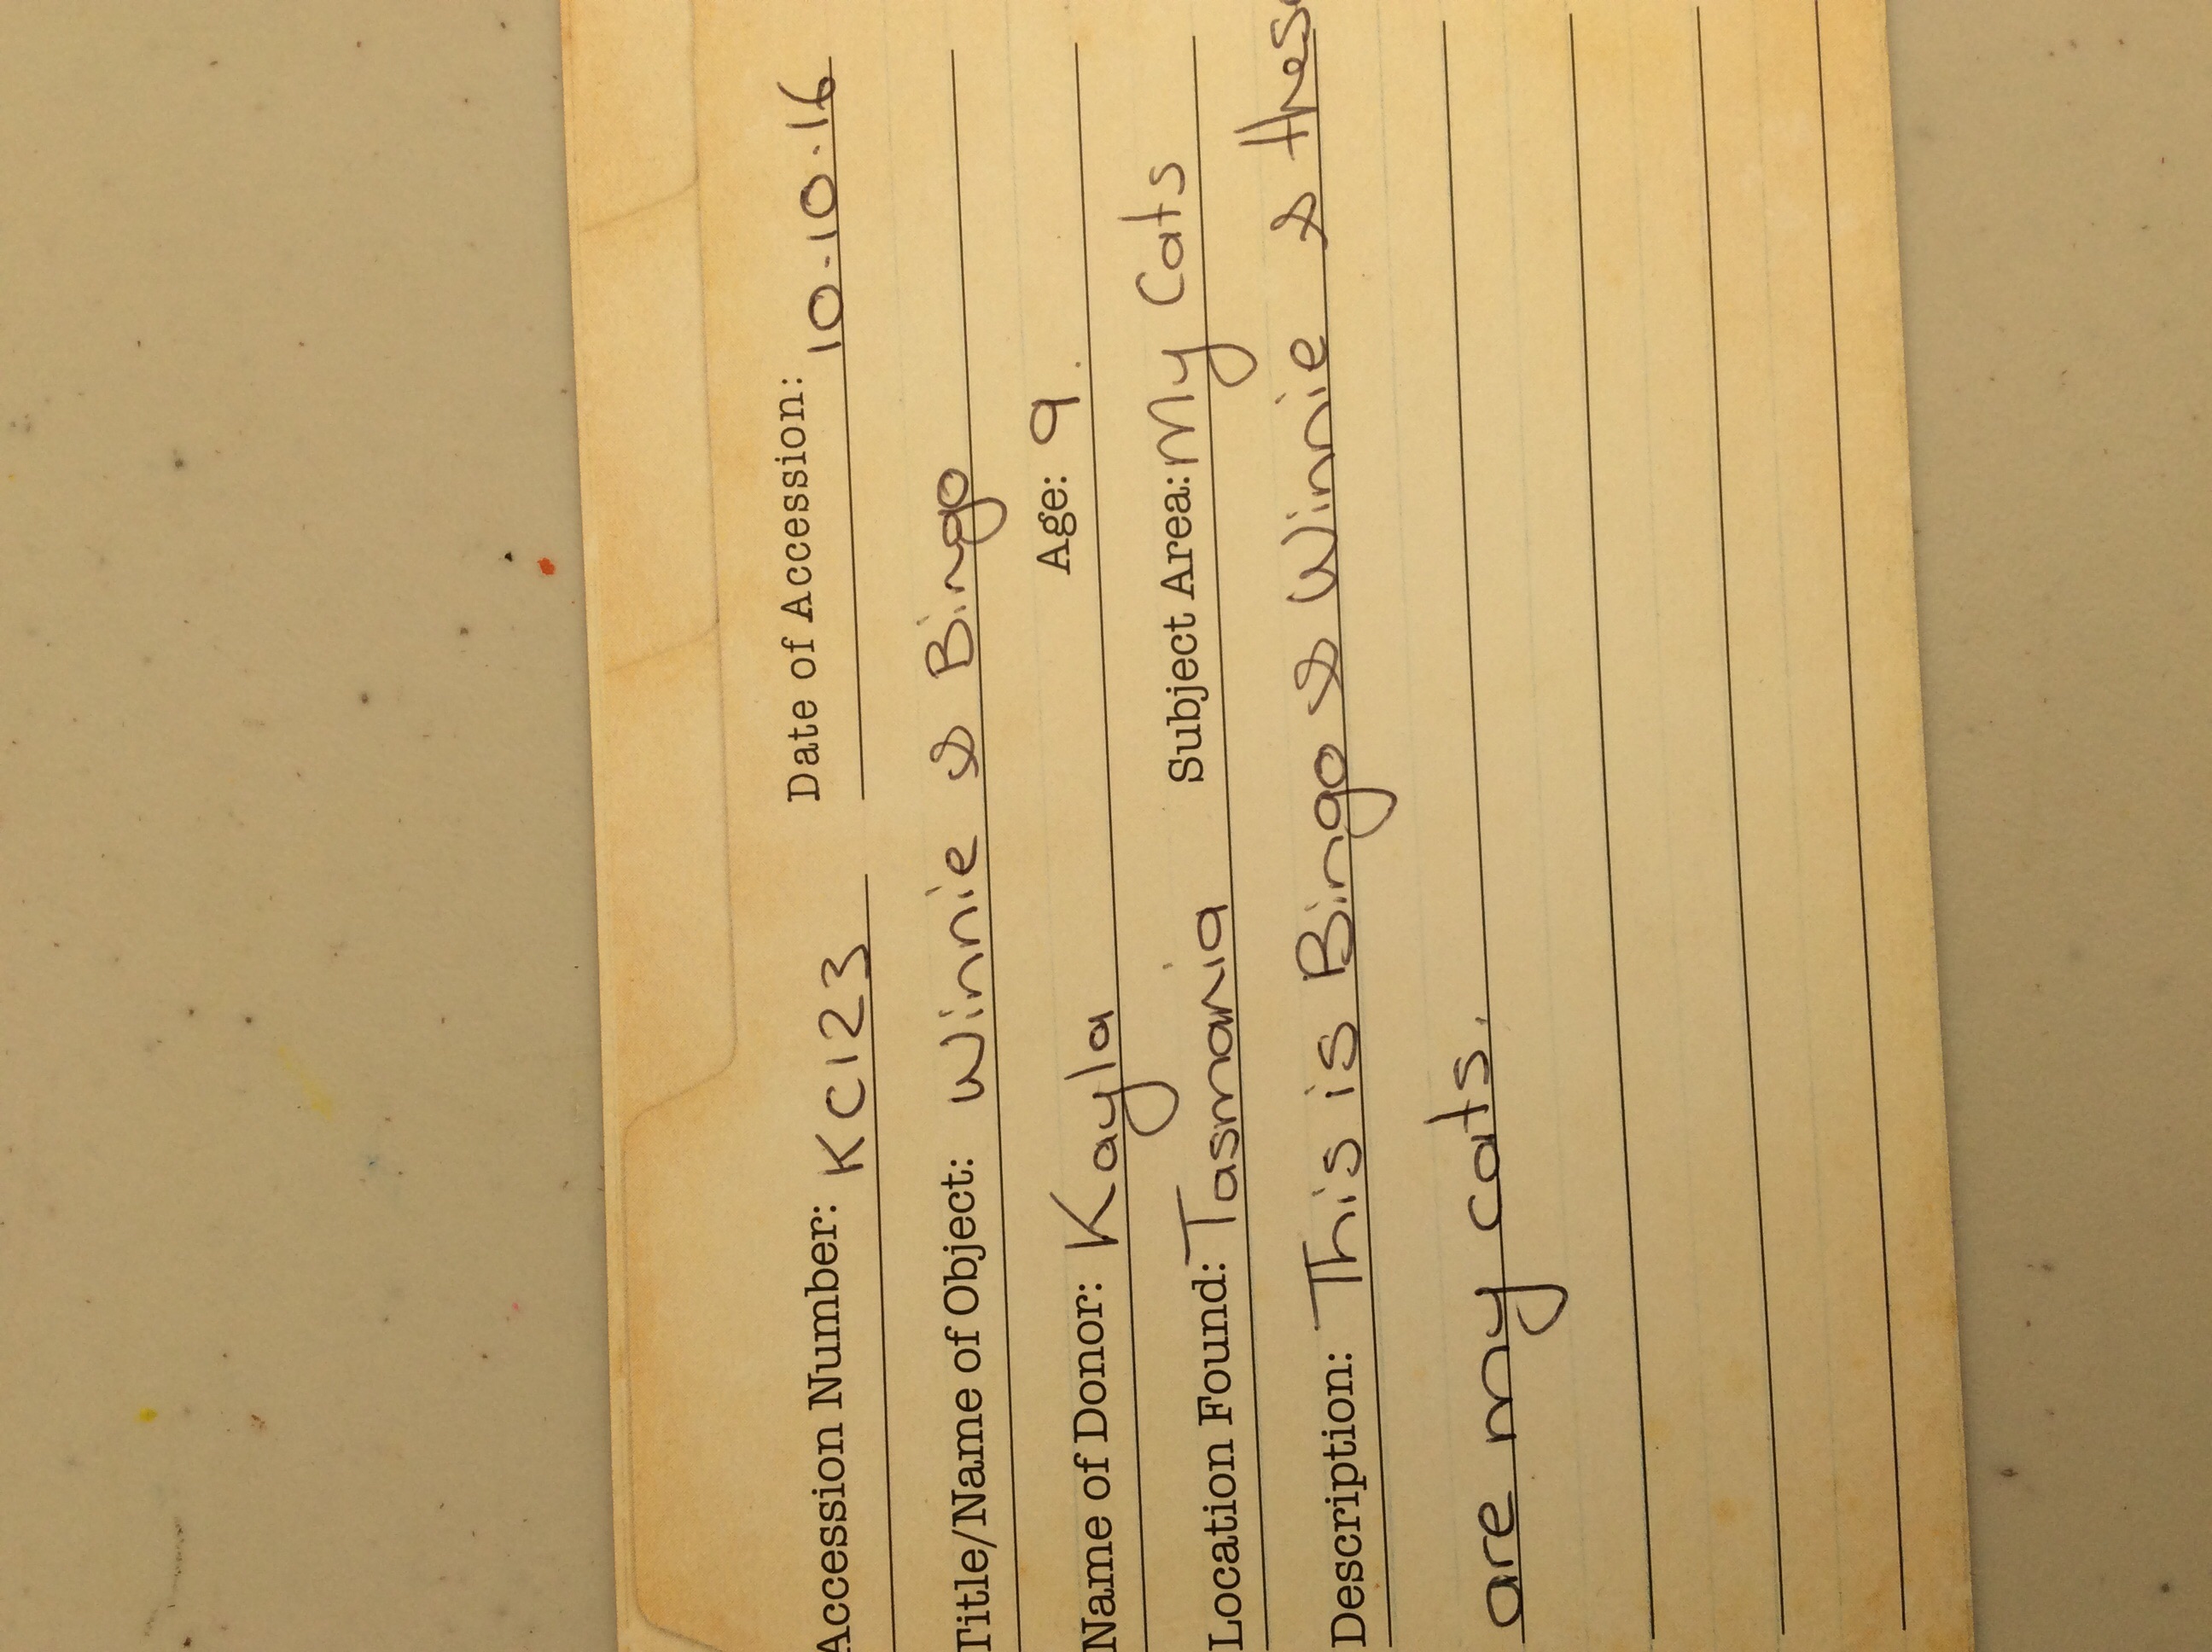 Accession Number: KC123 Date of Accession: 10.10.16
Title/Name of Object: Winnie & Bingo
Name of Donor: Kayla Age: 9.
Location Found: Tasmania Subject Area: My Cats
Description: This is Bingo & Winnie & these
are my cats.